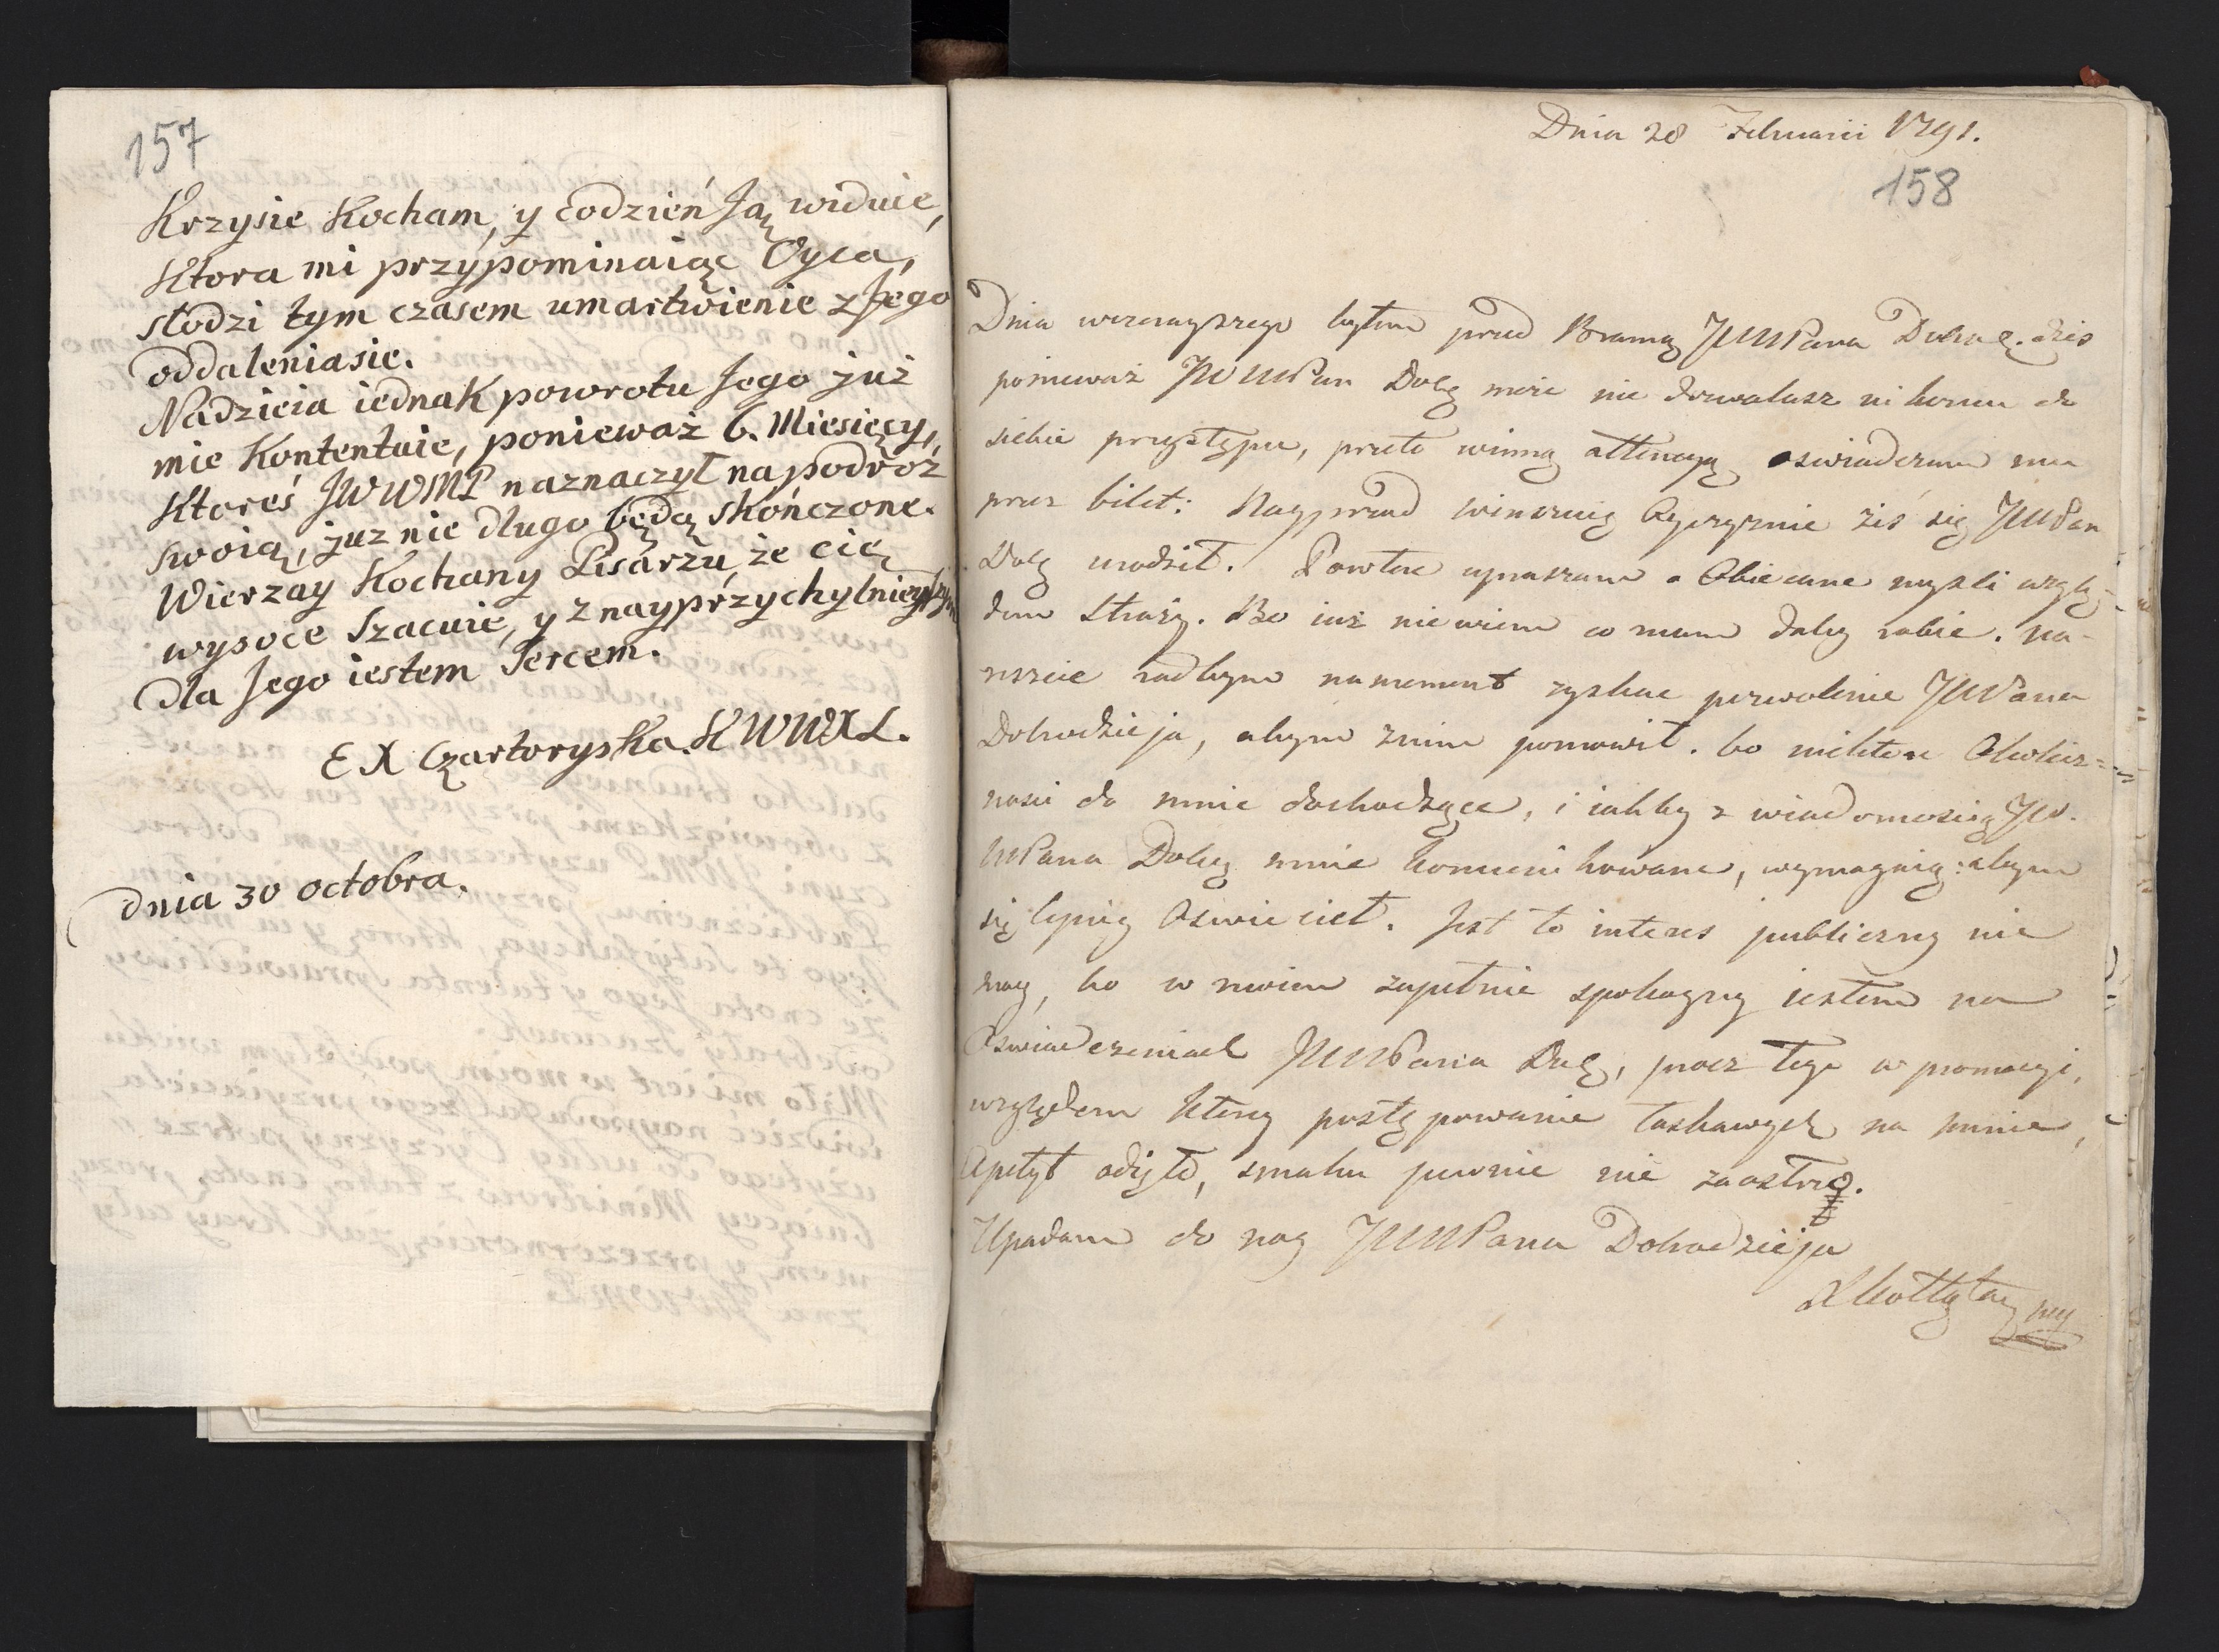 157
Krzysie Kocham, y codzień Ją widuie,
Ktora mi przypominaiąc Oyca,
słodzi tym czasem umartwienie z Jego
oddaleniasie.
Nadzieia iednak powrotu Jego już
mie Kontentuie, ponieważ 6. Miesięcy,
Ktoreś JWWMP naznaczył na podróż
swoią, juz nie długo będą skończone.
Wierzay Kochany Pisarzu, że cię
wysoce Szacuie, y z nayprzychylnieyszym
dla Jego iestem Sercem.
E X Czartoryska. K W W X L.
dnia 30 octobra.
Dnia 28 Februarii 1791.
158
Dnia wczorayszego byłem przed Bramą JWWPana Dobrog. dzis
ponieważ JWWPan Dobg może nie dozwalasz nikomu do
siebie przystępu, przeto winną attencyą oswiadczam mu
przez bilet: Nayprzod winszuię Oyczyznie żeś się JWPan
Dobg urodził. Powtore upraszam o Obiecane mysli wzglę-
dem Straży. Bo iuż nie wiem co mam daley robic. Na-
reszcie radbym na moment zyskac pozwolenie JWPana
Dobrodzieja, abym z nim pomowił. bo niektore Okolicz-
nosci do mnie dochodzące, i iakby z wiadomoscią JW.
WPana Dobg mnie komunikowane, wymagaią: abym
się lepiey Oswiecił. Jest to interes publiczny nie
moy, bo w moim zupełnie spokoyny iestem na
Oswiadczeniach JWWPana Dobg, procz tego w promocyi,
względem ktorey postępowanie łaskawych na mnie,
Apetyt odięło, smaku pewnie nie zaostrzą.
Upadam do nog JWWPana Dobrodzieja
X Kołłątay mp